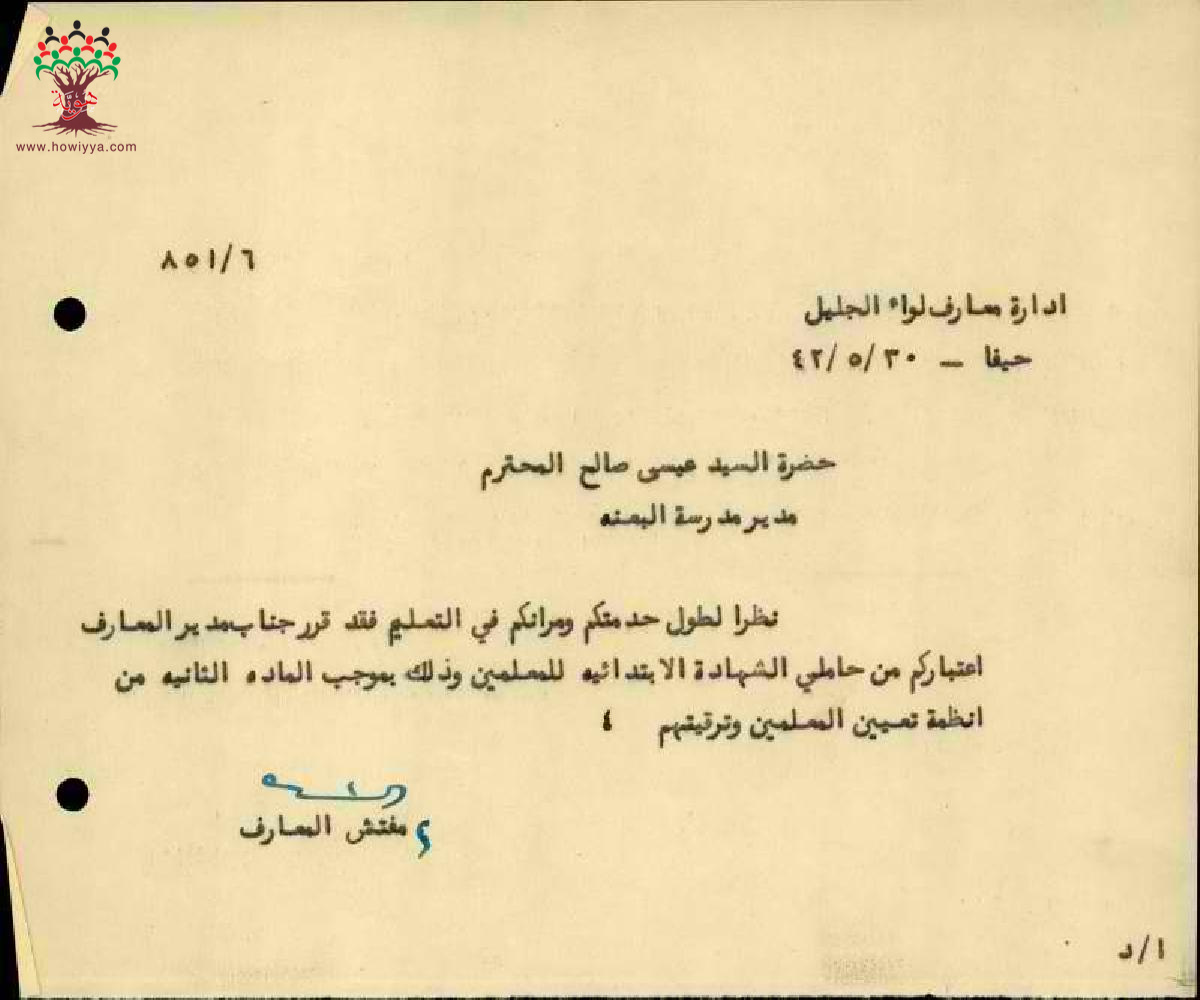 هوية
www.howiyya.com
٨٥١/٦
ادارة معارف لواء الجليل
حيفا — ٤٢/٥/٣٠
حضرة السيد عيسى صالح المحترم
مدير مدرسة البعنه
نظرا لطول خدمتكم ومرانكم في التعليم فقد قرر جناب مدير المعارف
اعتباركم من حاملي الشهادة الابتدائيه للمعلمين وذلك بموجب الماده الثانيه من
انظمة تعيين المعلمين وترقيتهم ٤
مفتش المعارف
ا/د